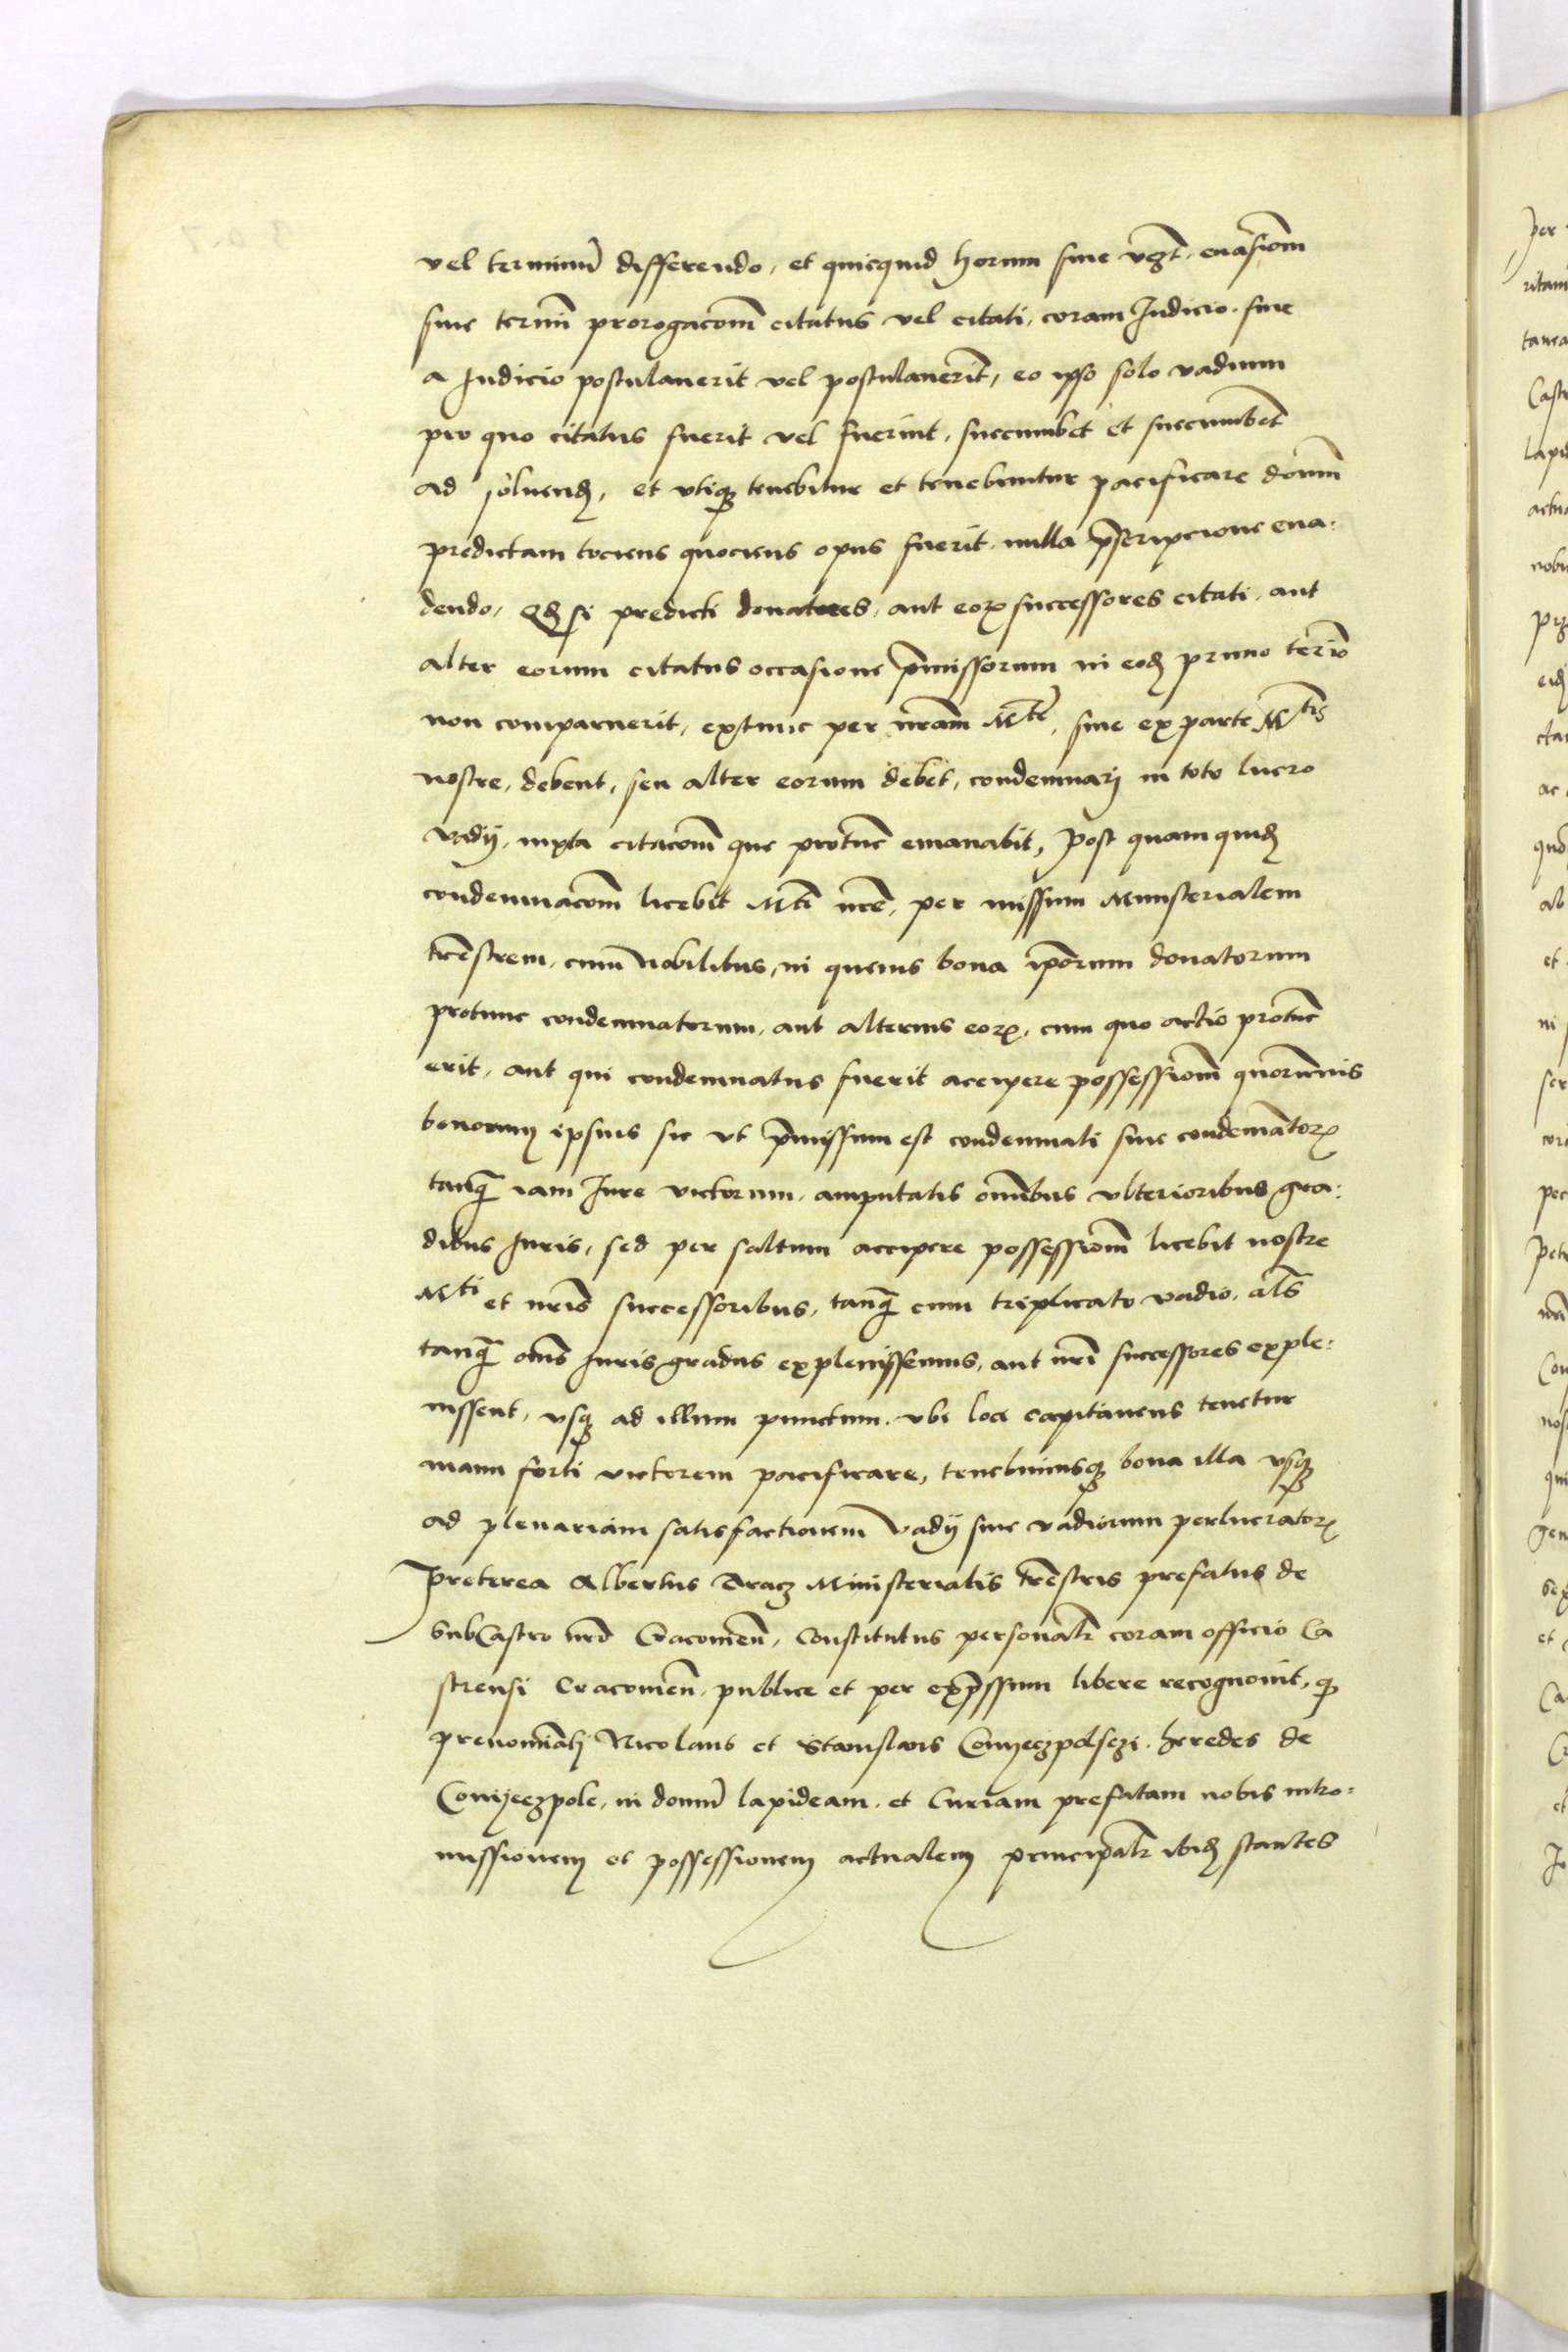 vel terminũ differendo, et quicquid horum siue vgt̃, euasioñm
siue termĩ prorogacoñm citatus vel citati, coram Judicio, siue
a Judicio postulauerit vel postulauerĩt, eo ipso solo vadium
pro quo citatus fuerit vel fuerint, succumbet et succumbẽt
ad soluendꝫ, et vtiqꝫ tenebitur et tenebuntur pacificare domũ
predictam tociens quociens opus fuerit, nulla p̃scripcione eua:
dendo, Qđ si predicti donatores, aut eoꝝ successores citati, aut
alter eorum citatus occasione p̃missorum in eodꝫ primo terĩo
non comparuerit, extunc per nr̃am Mtẽ, siue ex parte Mtis
nostre, debent, seu alter eorum debet, condemnarj in toto lucro
vadij, iuxta citacoñm que protũc emanabit, Post quam quidꝫ
condemnacoñm licebit Mti nr̃e, per missum Ministerialem
trẽstrem, cum Nobilibus, in queuis bona ip̃orum donatorum
protunc condemnatorum, aut alterius eoꝝ, cum quo actio protũc
erit, aut qui condemnatus fuerit accipere possessioñm quorumuis
bonorum ipsius sic vt p̃missum est condemnati siue condemñatoꝝ
tanqꝫ iam Jure victorum, amputatis om̃ibus vlterioribus gra:
dibus Juris, sed per saltum accipere possessioñm licebit nostre
Mti et nr̃is successoribus, tanqꝫ cum triplicato vadio, al̃s
tanqꝫ om̃s Juris gradus expleuissemus, aut nr̃i successores exple:
uissent, vsqꝫ ad illum punctum, vbi loci capitaneus tenetur
manu forti victorem pacificare, tenebimusqꝫ bona illa vsqꝫ
ad plenariam satisfactionem vadij siue vadiorum perlucratoꝝ
Preterea Albertus Dracz Ministerialis trẽstris prefatus de
SubCastro nr̃o Cracouieñ, Constitutus personalꝛ coram officio Ca
strensi Cracouieñ, publice et per exp̃ssum libere recognouit, qꝫ
prenomĩatj Nicolaus et Stanislaus Conyeczpolsczi, heredes de
Conyeczpole, in domũ lapideam, et Curiam prefatam nobis intro:
missionem et possessionem actualem principalꝛ ibidꝫ stantes